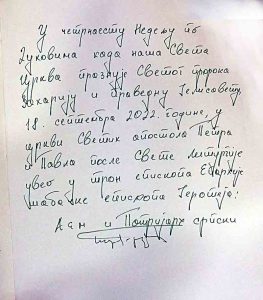 У четрнаесту Недељу по
Духовима када наша Света
Црква празнује Светог пророка
Захарију и праведну Јелисавету,
18. септембра 2022. године, у
цркви Светих апостола Петра
и Павла после Свете литургије
увео у трон епископа Епархије
шабачке епископа Јеротеја:
Патријарх српски